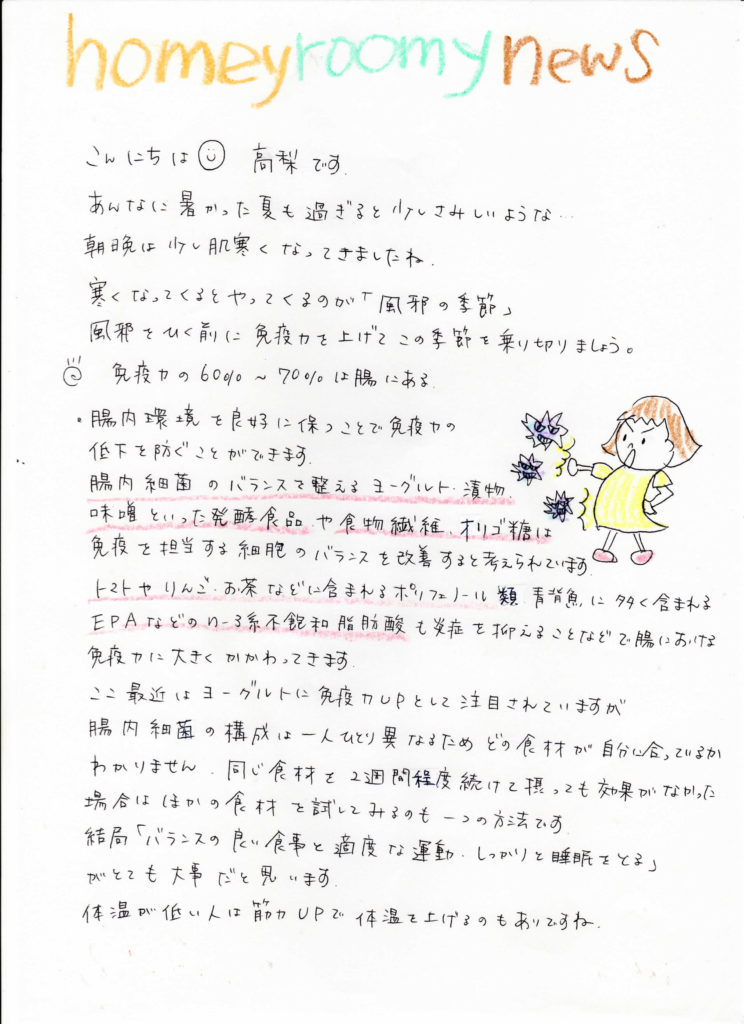 homeyroomynews
こんにちは 高梨です.
あんなに暑かった夏も過ぎると少しさみしいような…
朝晩は少し肌寒くなってきましたね.
寒くなってくるとやってくるのが「風邪の季節」
風邪をひく前に免疫力を上げてこの季節を乗り切りましょう。
免疫力の60%~70%は腸にある
・腸内環境を良好に保つことで免疫力の
低下を防ぐことができます.
腸内細菌のバランスで整えるヨーグルト・漬物.
味噌といった発酵食品や食物繊維.オリゴ糖は
免疫を担当する細胞のバランスを改善すると考えられています.
トマトやりんご・お茶などに含まれるポリフェノール類.青背魚に多く含まれる
EPAなどのn-3系不飽和脂肪酸も炎症を抑えることなどで腸における
免疫力に大きくかかわってきます.
ここ最近はヨーグルトに免疫力UPとして注目されていますが
腸内細菌の構成は一人ひとり異なるためどの食材が自分に合っているか
わかりません.同じ食材を2週間程度続けて摂っても効果がなかった
場合はほかの食材を試してみるのも一つの方法です
結局「バランスの良い食事と適度な運動.しっかりと睡眠をとる」
がとても大事だと思います.
体温が低い人は筋力UPで体温を上げるのもありですね.